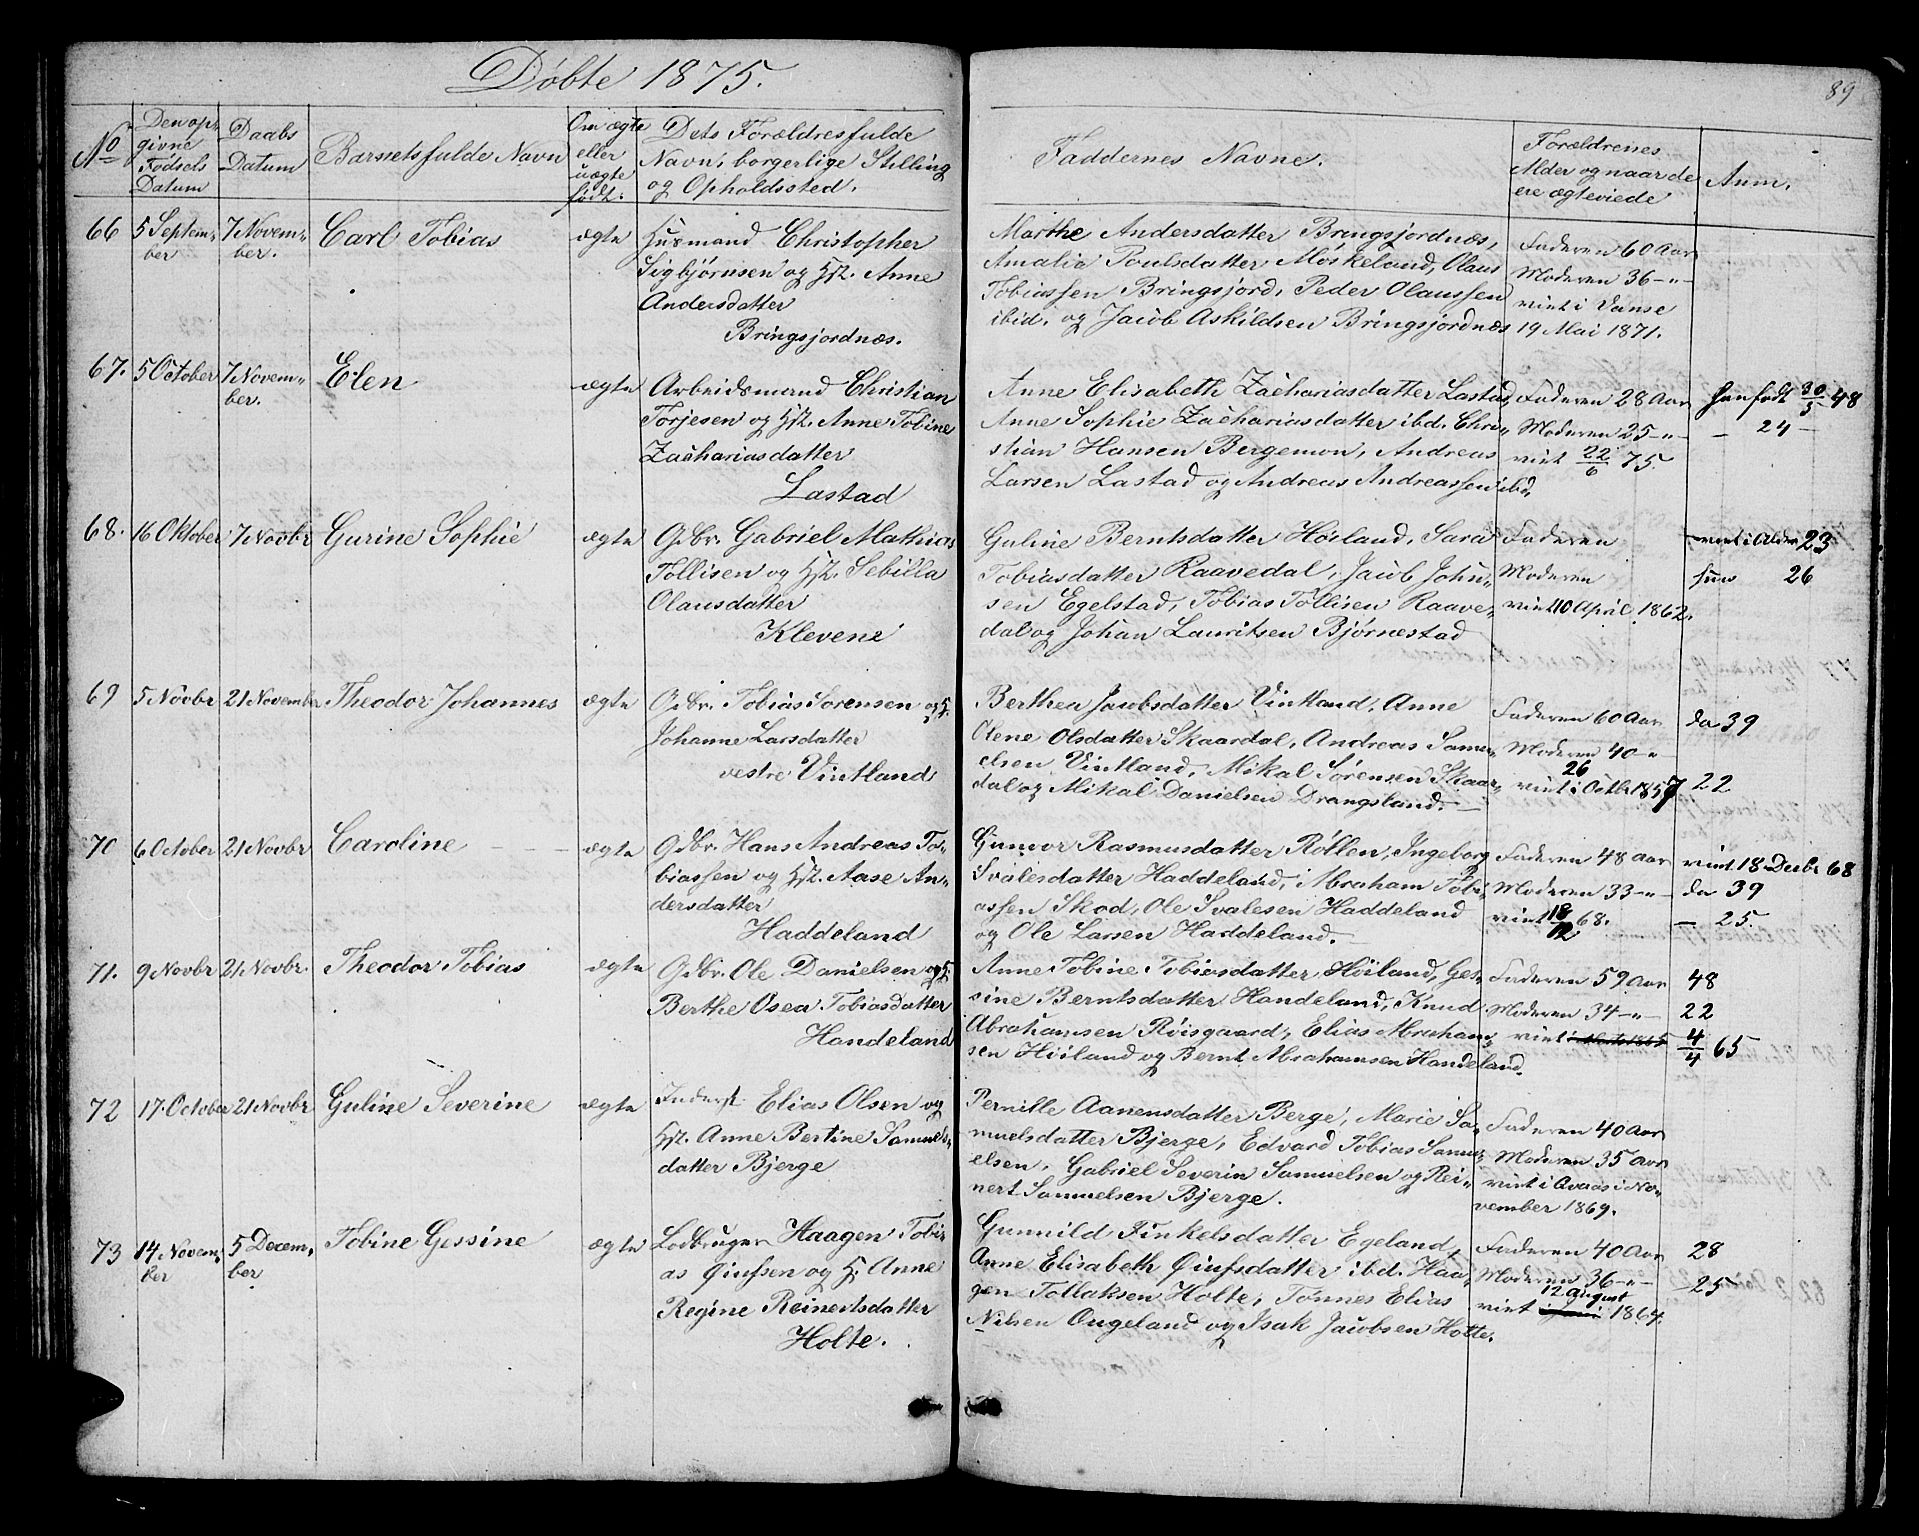 Döbte 1875.
89
No
Den op-
givne
Födsels
Datum
Daabs
Datum
Barnets fulde Navn
Om ægte
eller
uægte
födt.
Dets Forældres fulde
Navn, borgerlige Stilling
og Opholdssted.
Faddernes Navne.
Forældrenes
Alder og naar de
ere ægteviede
Anm.
66
5 Septem-
ber
7 Novem-
ber.
Carl Tobias
ægte
Husmand Christopher
Sigbjørnsen og Hst. Anne
Andersdatter
Bringsjordnæs.
Marthe Andersdatter Bringsjordnæs,
Amalie Poulsdatter Møskeland, Olaus
Tobiassen Bringsjord, Peder Olaussen
ibid. og Jacob Askildsen Bringsjordnæs
Faderen 60 Aar
Moderen 36 -"-
viet i Vanse
19 Mai 1871.
67.
5 October
7 Novem-
ber.
Elen
ægte
Arbeidsmand Christian
Torjesen og Hst. Anne Tobine
Zachariasdatter
Lastad
Anne Elisabeth Zachariasdatter Lastad,
Anne Sophie Zachariasdatter ibd. Chri-
stian Hansen Bergemon, Andreas
Larsen Lastad og Andreas Andreassen ibd,
Faderen 28 Aar
Moderen 25 -"-
viet 22/6 75.
han født 30/5 48
- 24 -
68.
16 Oktober
7 Novbr
Gurine Sophie
ægte
Gdbr. Gabriel Mathias
Tollisen og Hst. Sebilla
Olausdatter
Klevene
Guline Berntsdatter Høiland, Sara
Tobiasdatter Raavedal, Jacob John-
sen Egelstad, Tobias Tollisen Raave-
dal og Johan Lauritsen Bjørnestad
Faderen
Moderen
viet 10 April 1862.
viet i Alder 23
hun 26
69
5 Novbr
21 November
Theodor Johannes
ægte
Gdbr. Tobias Sørensen og H.
Johanne Larsdatter
vestre Vintland
Berthea Jacobsdatter Vintland, Anne
Olene Olsdatter Skaardal, Andreas Samu-
elsen Vintland, Mikal Sørensen Skaar-
dal og Mikal Danielsen Drangsland.
Faderen 60 Aar
Moderen 40 -"
26
viet i Octbr 1857
da 39
22
70
6 October
21 Novbr
Caroline
ægte
Gdbr. Hans Andreas To-
biassen og Hst. Aase An-
dersdatter
Haddeland
Gunvor Rasmusdatter Røllen, Ingeborg
Svalesdatter Haddeland, Abraham Tobi-
assen Skod, Ole Svalesen Haddeland
og Ole Larsen Haddeland.
Faderen 48 Aar
Moderen 33 -"-
viet 18/12 68.
viet 18 Decbr 68
da 39
- 25.
71.
9 Novbr
21 Novbr.
Theodor Tobias
ægte
Gdbr. Ole Danielsen og H.
Berthe Osea Tobiasdatter
Handeland
Anne Tobine Tobiasdatter Høiland, Ges-
sine Berntsdatter Handeland, Knud
Abrahamsen Røisgaard, Elias Abraham-
sen Høiland og Bernt Abrahamsen Handeland.
Faderen 59 Aar
Moderen 34 -"-
viet
48
22
4/4 65
72
17. October
21 Novbr
Guline Severine
ægte
Inderst Elias Olsen og
Hst. Anne Bertine Samuels-
datter Bjerge
Pernille Aanensdatter Berge, Marie Sa-
muelsdatter Bjerge, Edvard Tobias Samu-
elsen, Gabriel Severin Samuelsen og Rei-
nert Samuelsen Bjerge.
Faderen 40 Aar
Moderen 35 Aar
viet i Avaas i No-
vember 1869.
73
14 Novem-
ber
5 Decem-
ber
Tobine Gessine
ægte
Lodbruger Haagen Tobi-
as Öiufsen og H. Anne
Regine Reinertsdatter
Holte.
Gunnild Finkelsdatter Egeland,
Anne Elisabeth Öiufsdatter ibd. Haa-
gen Tollaksen Holte, Tönnes Elias
Nilsen Ougeland og Isak Jacobsen Holte.
Faderen 40 Aar
Moderen 36 -"-
12 August
viet i Juni 1864.
28
- 25